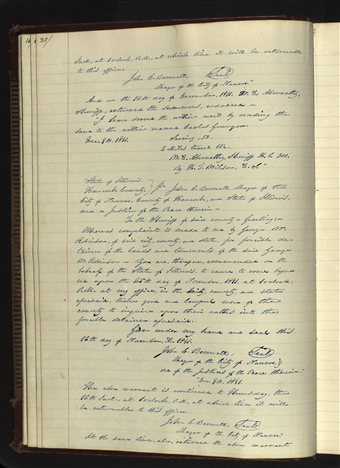 Inst. at 1 o'clock, P.M. at which time it will be returnable
to this office.
John C. Bennett, (Seal)
Mayor of the City of Nauvoo
And on the 16th day of December, 1841.
Sheriff, returned the summons, endorsed —
"I have served the within writ by reading the
same to the within named
Dec. 1841.
Serving .50
Miles travel
Sheriff H. Co. Ill.
By D.S."
State of Illinois,
Hancock County, } John C. Bennett, Mayor of the
City of Nauvoo, County of Hancock, and State of Illinois,
and a Justice of the Peace therein
To the Sheriff of said county — Greeting —
Whereas complaint is made to me by George W.
Robinson, of said city, county and state, for forcible de-
tainer of the lands and tenements of the said George
W. Robinson — You are, therefore, commanded on the
behalf of the State of Illinois, to cause to come before
me upon the day of 1841, at 1 o'clock,
P.M. at my office in the said city, county and state
aforesaid, twelve good and lawful men of the
county to inquire upon their oaths into the
forcible detainer aforesaid.
Given under my hand and seal this
16th day of November, A.D. 1841.
John C. Bennett, (Seal)
Mayor of the City of Nauvoo, &
one of the Justices of the Peace therein
Dec 1841.
The above warrant is continued to Thursday, the
16th Inst. at 1 o'clock, P.M. at which time it will
be returnable to this office.
John C. Bennett, (Seal)
Mayor of the City of Nauvoo
At the same time, also, returned the above warrant